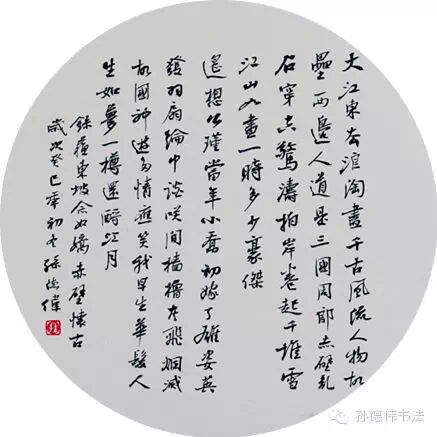 大江東去浪淘盡千古風流人物故
壘西邊人道是三國周郎赤壁亂
石穿空驚濤拍岸卷起千堆雪
江山如畫一時多少豪傑
遙想公瑾當年小喬初嫁了雄姿英
發羽扇綸巾談笑間檣櫓灰飛烟滅
故國神遊多情應笑我早生華髮人
生如夢一樽還酹江月
錄蘇東坡念奴嬌赤壁懷古
歲次癸巳年初冬孫德偉
孙德伟书法